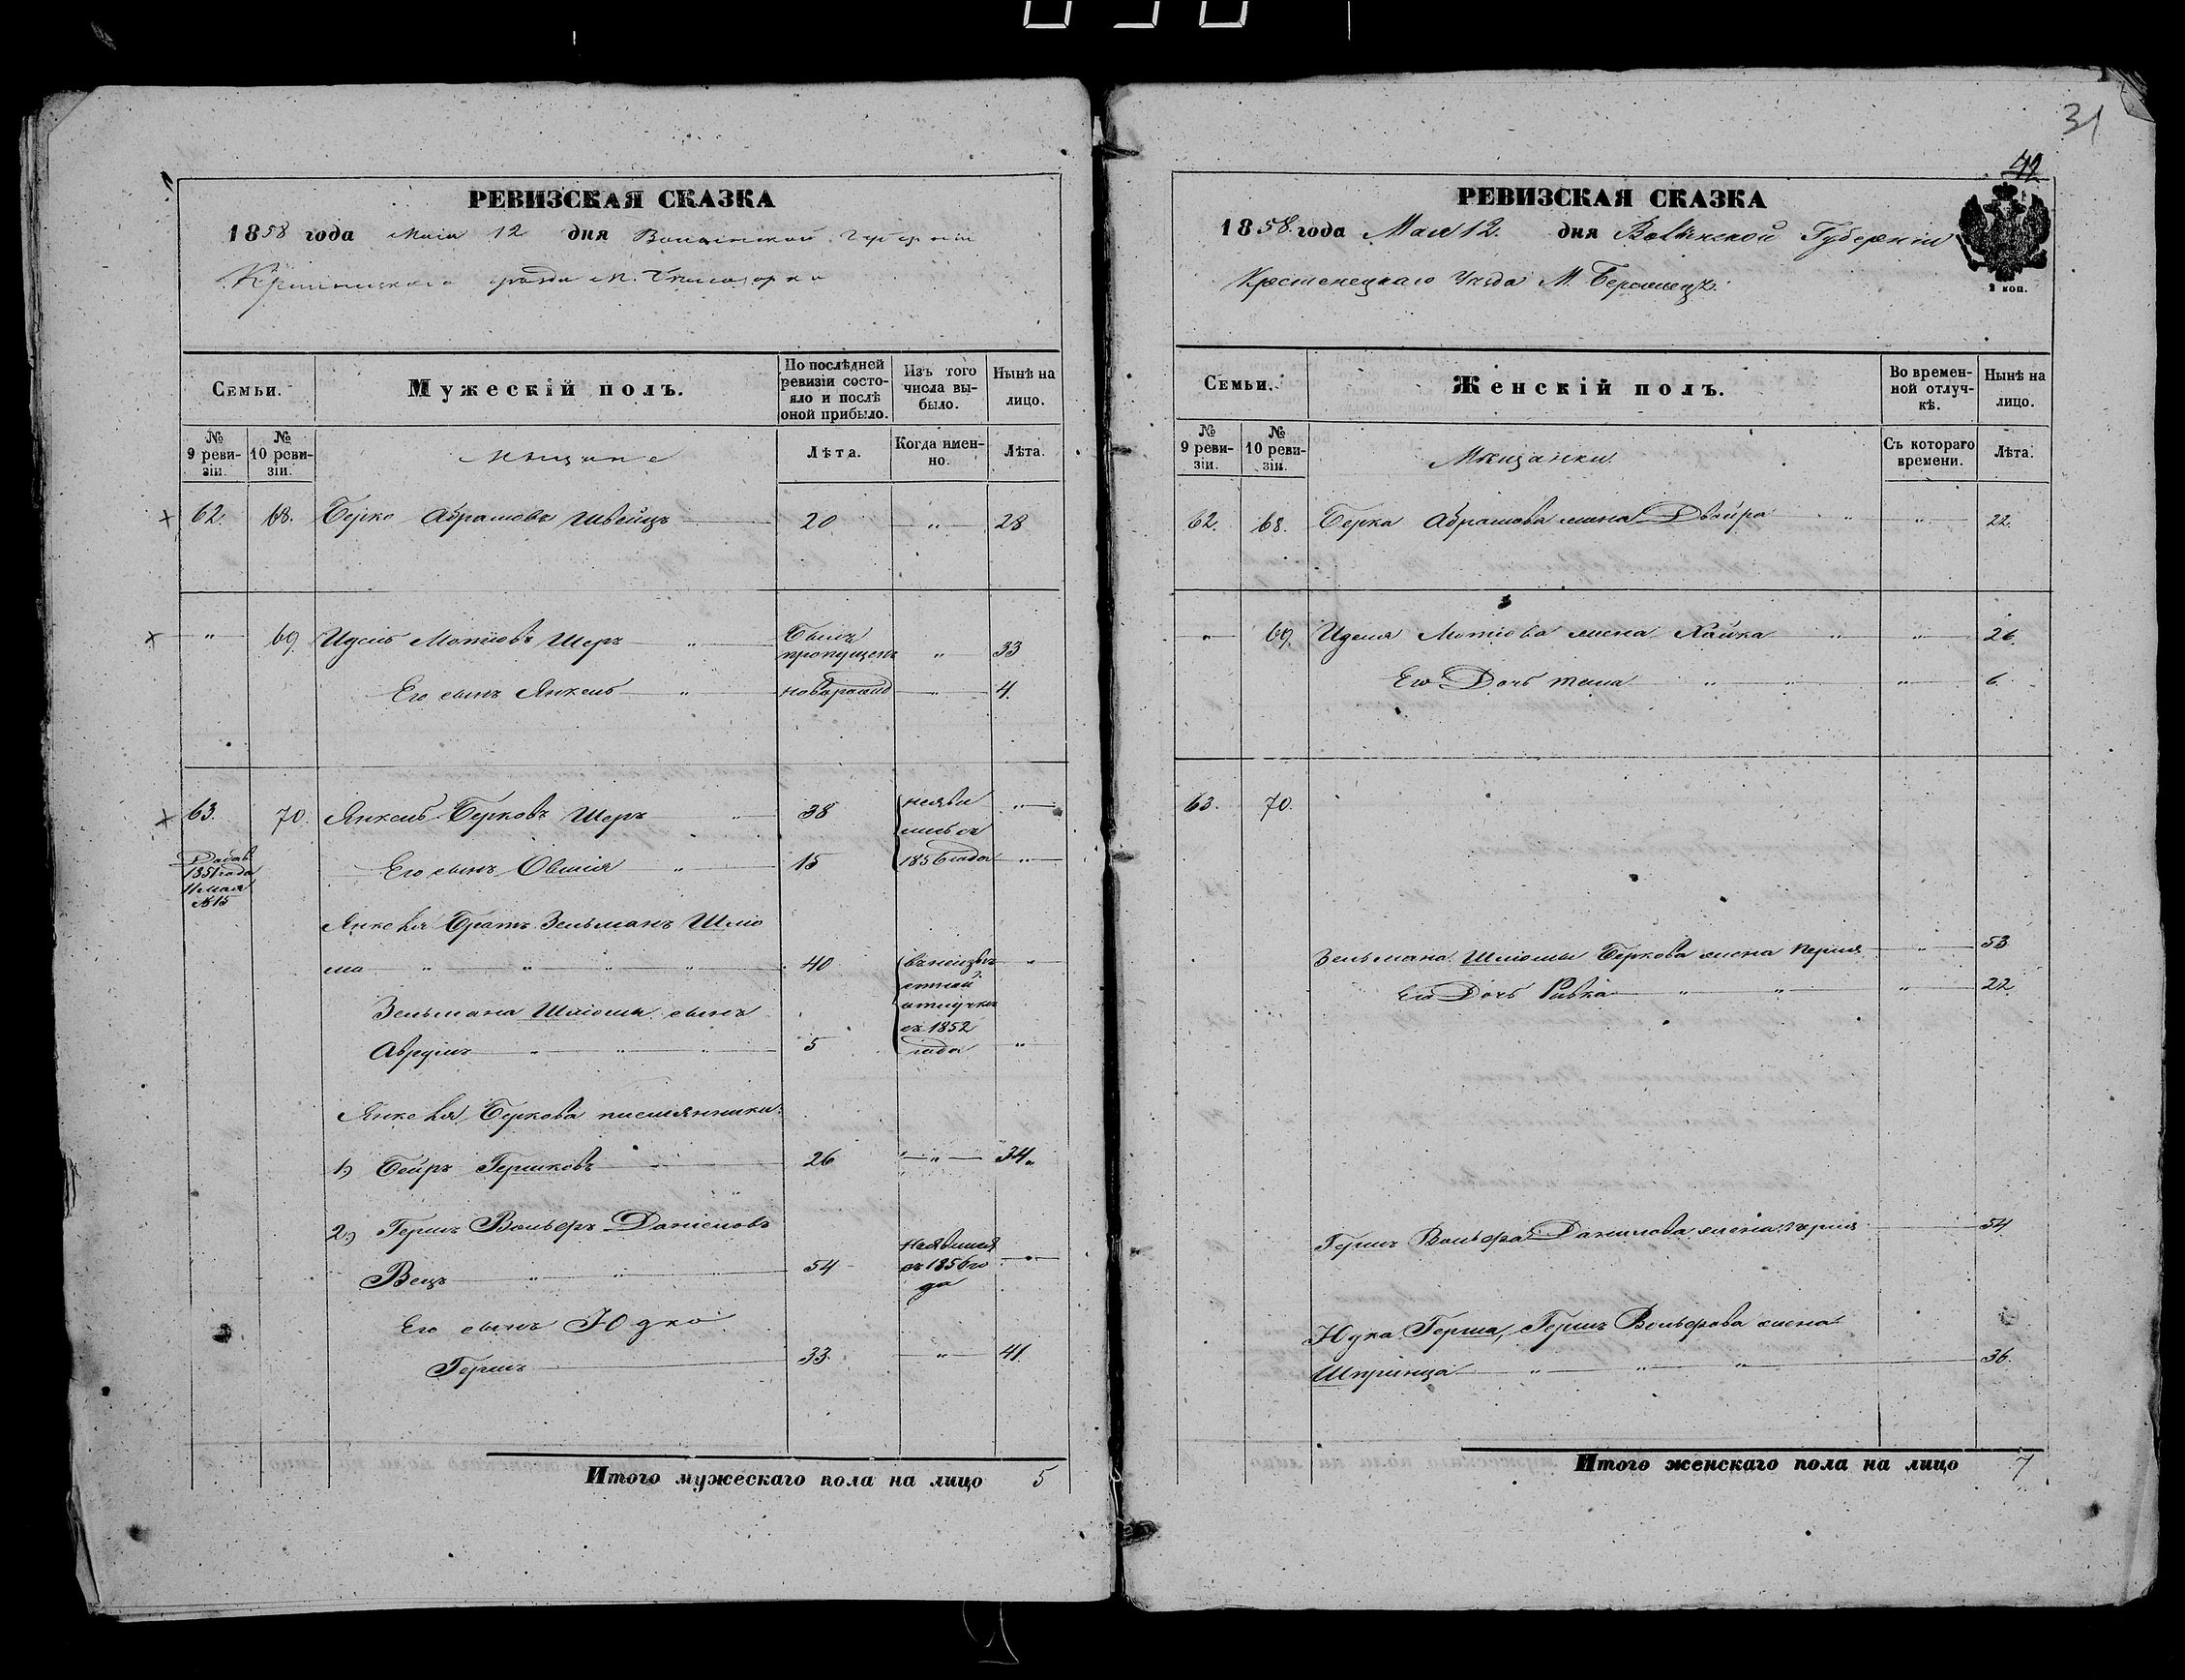 31
42
РЕВИЗСКАЯ СКАЗКА
1858 года Мая 12 дня Волынской Губерніи
Кременецкаго уѣзда м.
Семьи.
Мужескій полъ.
По послѣдней ревизіи состояло и послѣ оной прибыло.
Изъ того числа выбыло.
Нынѣ на лицо.
№ 9 ревизіи.
№ 10 ревизіи.
Мѣщане
Лѣта.
Когда именно.
Лѣта.
62. 68. Берко Абрамовъ Швейцъ 20 " 28
" 69. Идель Мотіовъ Шеръ " Былъ пропущенъ " 33
Его сынъ Янкель " новорожд 4.
63. 70. Янкель Берковъ Шеръ " 38 неяви "
лись съ
Его сынъ Овшія " 15 1856 года "
Добав
1851 года
11 мая
№ 15
Янкеля Братъ Зельманъ Шлио
ма " " " " 40 въ неизвѣ "
стной
Зельмана Шліомы сынъ отлучкѣ
съ 1852
Аврумъ " " " 5 года "
Янкеля Беркова племянники
1) Бейръ Гершковъ 26 " 34
2) Гершъ Вольфъ Даніеловъ
Вецъ " " " 54 Неявился съ 1856 года "
Его сынъ Юдко
Гершъ 33 " 41
Итого мужескаго пола на лицо 5
РЕВИЗСКАЯ СКАЗКА
1858. года Мая 12. дня Волынской Губерніи
Кременецкаго Уѣзда М. Бережецъ.
2 коп.
Семьи.
Женскій полъ.
Во временной отлучкѣ.
Нынѣ на лицо.
№ 9 ревизіи.
№ 10 ревизіи.
Мѣщанки
Съ котораго времени.
Лѣта.
62. 68. Берка Абрамова жена Двойра " " 22.
" 69. Иделя Мотіова жена Хайка " " 26
Его Дочь " " " 6
63. 70.
Зельмана Шліомы Беркова жена Перля " 53
Его Дочь Ривка " " " 22
Гершъ Вольфа Данилова жена 54
Юдка Герша, Гершъ Вольфова жена
Шпринца " " " 36.
Итого женскаго пола на лицо 7